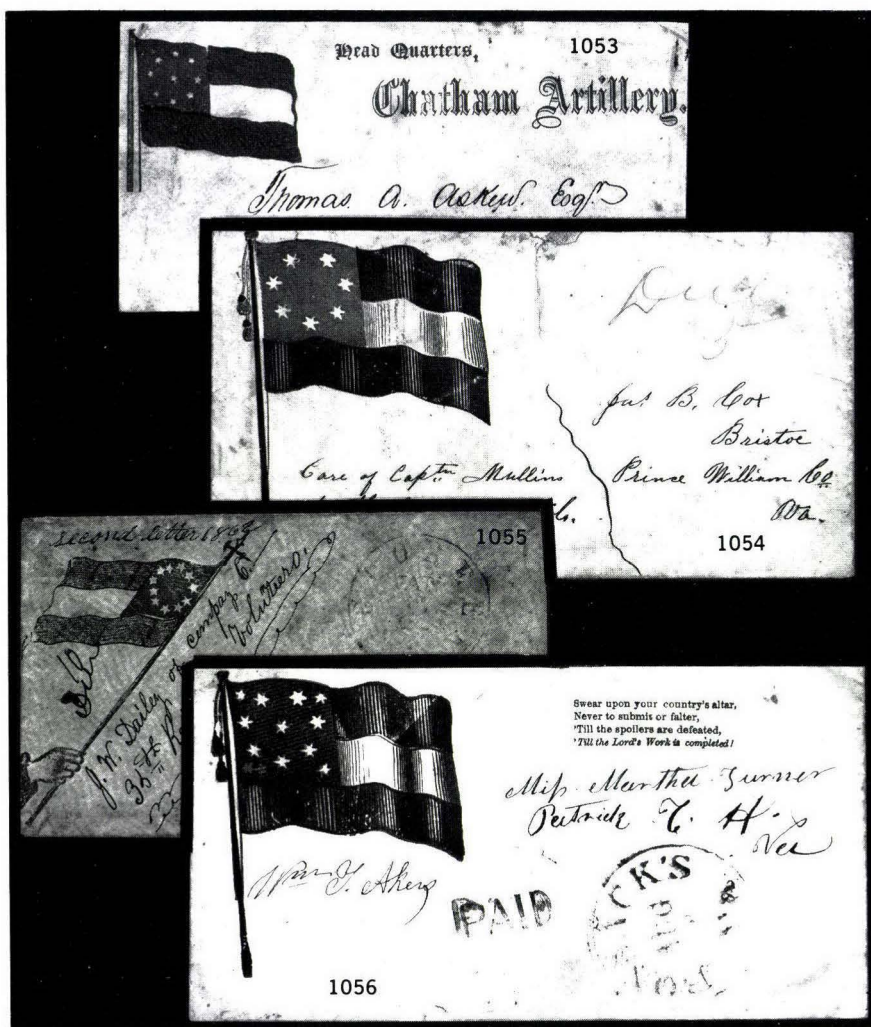 Head Quarters, 1053
Chatham Artillery.
Thomas A. Askew. Esqr.
Jas. B. Cox
Bristoe
Care of Captn Mullins Prince William Co
Va.
1054
second letter 186
1055
J. W. Dailey of compay C.
35th
Volunteers.
Swear upon your country's altar,
Never to submit or falter,
'Till the spoilers are defeated,
'Till the Lord's Work is completed!
Miss Martha Turner
Patrick C. H.
Wm T. Akers
PAID
CK'S
1056